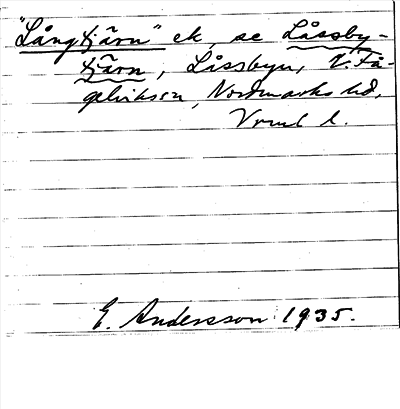 "Långtjärn" ek, se Låssby-
tjärn, Låssbyn, V. Få-
gelviks sn, Nordmarks hd,
Vrml l.
E. Andersson 1935.